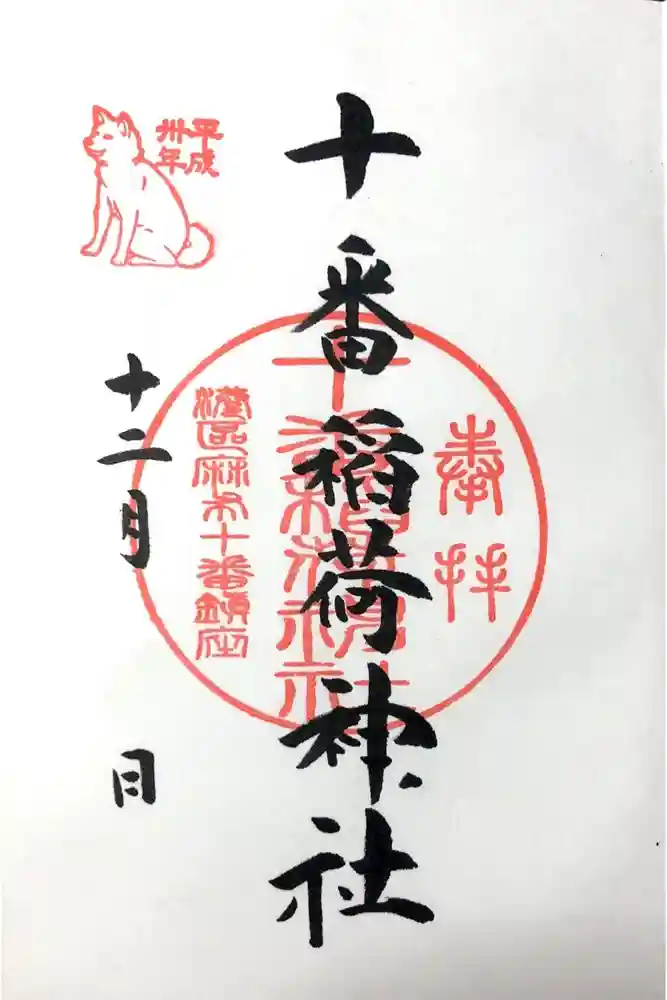 奉拝
十番稲荷神社
平成
卅年
十二月 日
港区麻布十番鎮座